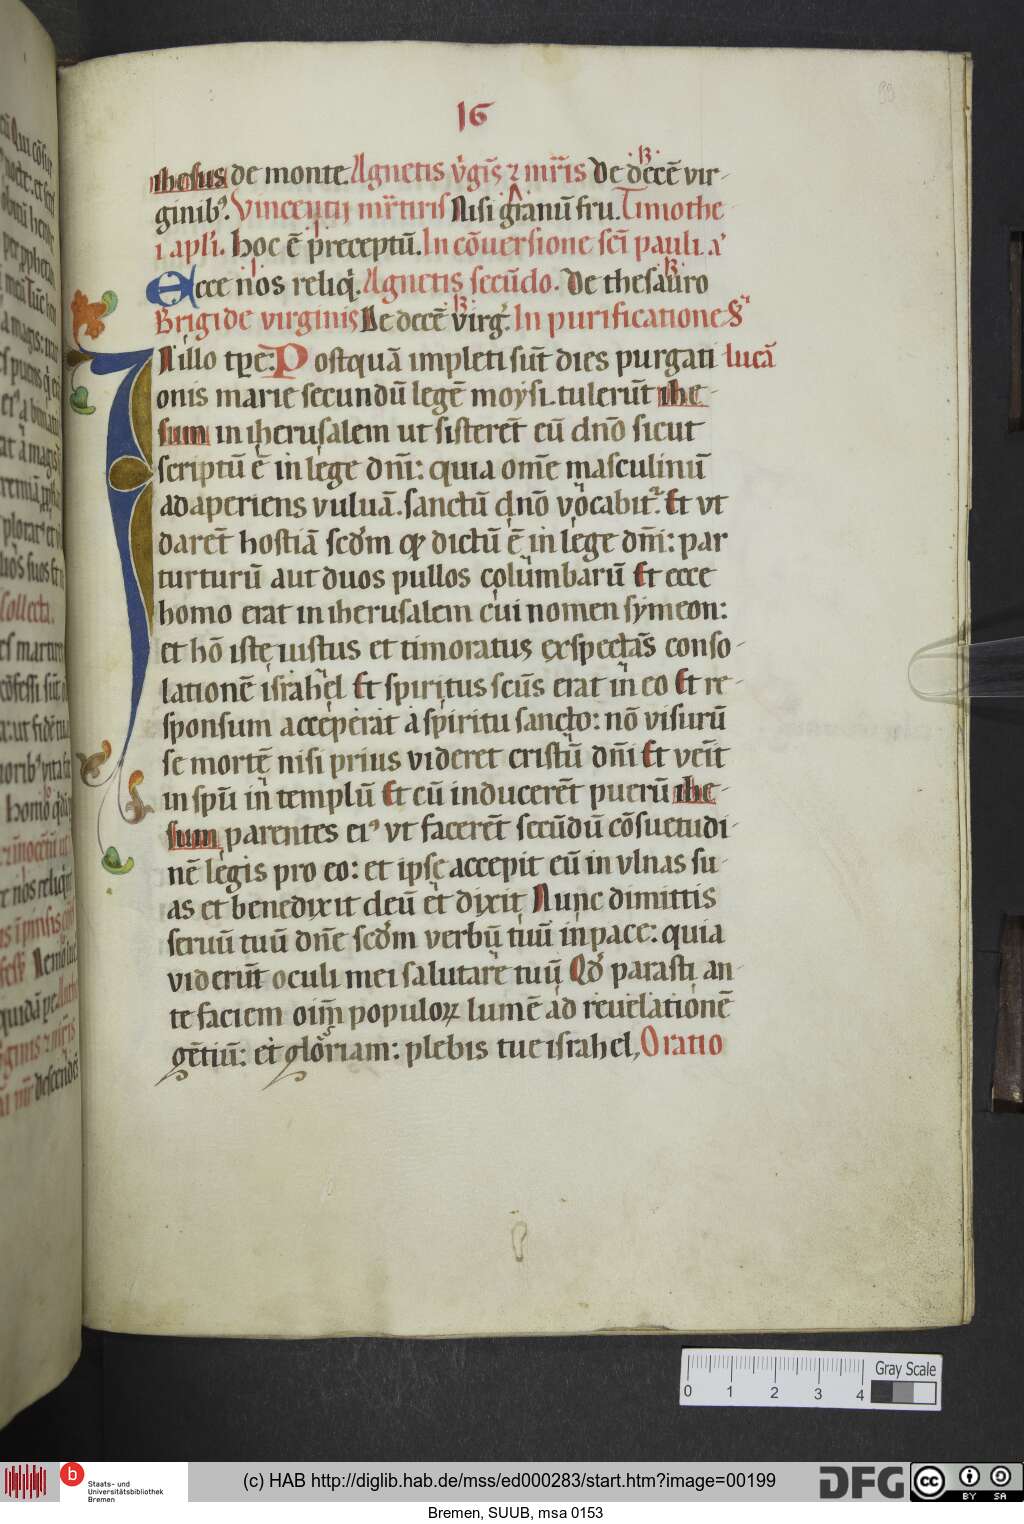 99
16
ihesus de monte. Agnetis v̓gīs ⁊ mr̄is De decē vir-
ginibꝰ. Vincentij mr̄tiris Nisi g̓anū fru. Timothe
i apl̄i. hoc ē preceptū. In cōuersione sc̄i pauli. a
Ecce nos reliq̓. Agnetis secūdo. De thesauro
Brigide virginis De decē virg̓. In purificatione S
N illo tp̄e: Postquā impleti sūt dies purgati lucā
onis marie secundū legē moysi. tulerūt ihe-
sum in iherusalem ut sisterēt eū dn̄o sicut
scriptū ē in lege dn̄i: quia om̄e masculinū
adaperiens vuluā. sanctū dn̄o vocabit̉. Et vt
darēt hostiā scd̄m qd̓ dictū ē in lege dn̄i: par
turturū aut duos pullos columbarū Et ecce
homo erat in iherusalem cui nomen symeon:
et hō iste iustus et timoratus exspectās conso-
lationē israhel Et spiritus scūs erat in eo Et re-
sponsum acceperat a spiritu sancto: nō visurū
se mortē nisi prius videret cristū dn̄i Et veīt
in spū in templū Et cū inducerēt puerū ihe-
sum parentes eiꝰ vt facerēt secūdū cōsuetudi-
nē legis pro eo: et ipse accepit eū in vlnas su-
as et benedixit deū et dixit Nunc dimittis
seruū tuū dn̄e scd̄m verbū tuū in pace: quia
viderūt oculi mei salutare tuū Qd̓ parasti an-
te faciem oim̄ populoꝝ lumē ad reuelationē
gētiū: et gloriam: plebis tue israhel, Oratio
0 1 2 3 4 Gray Scale
b Staats- und
Universitätsbibliothek
Bremen
(c) HAB http://diglib.hab.de/mss/ed000283/start.htm?image=00199
DFG
cc BY SA
Bremen, SUUB, msa 0153